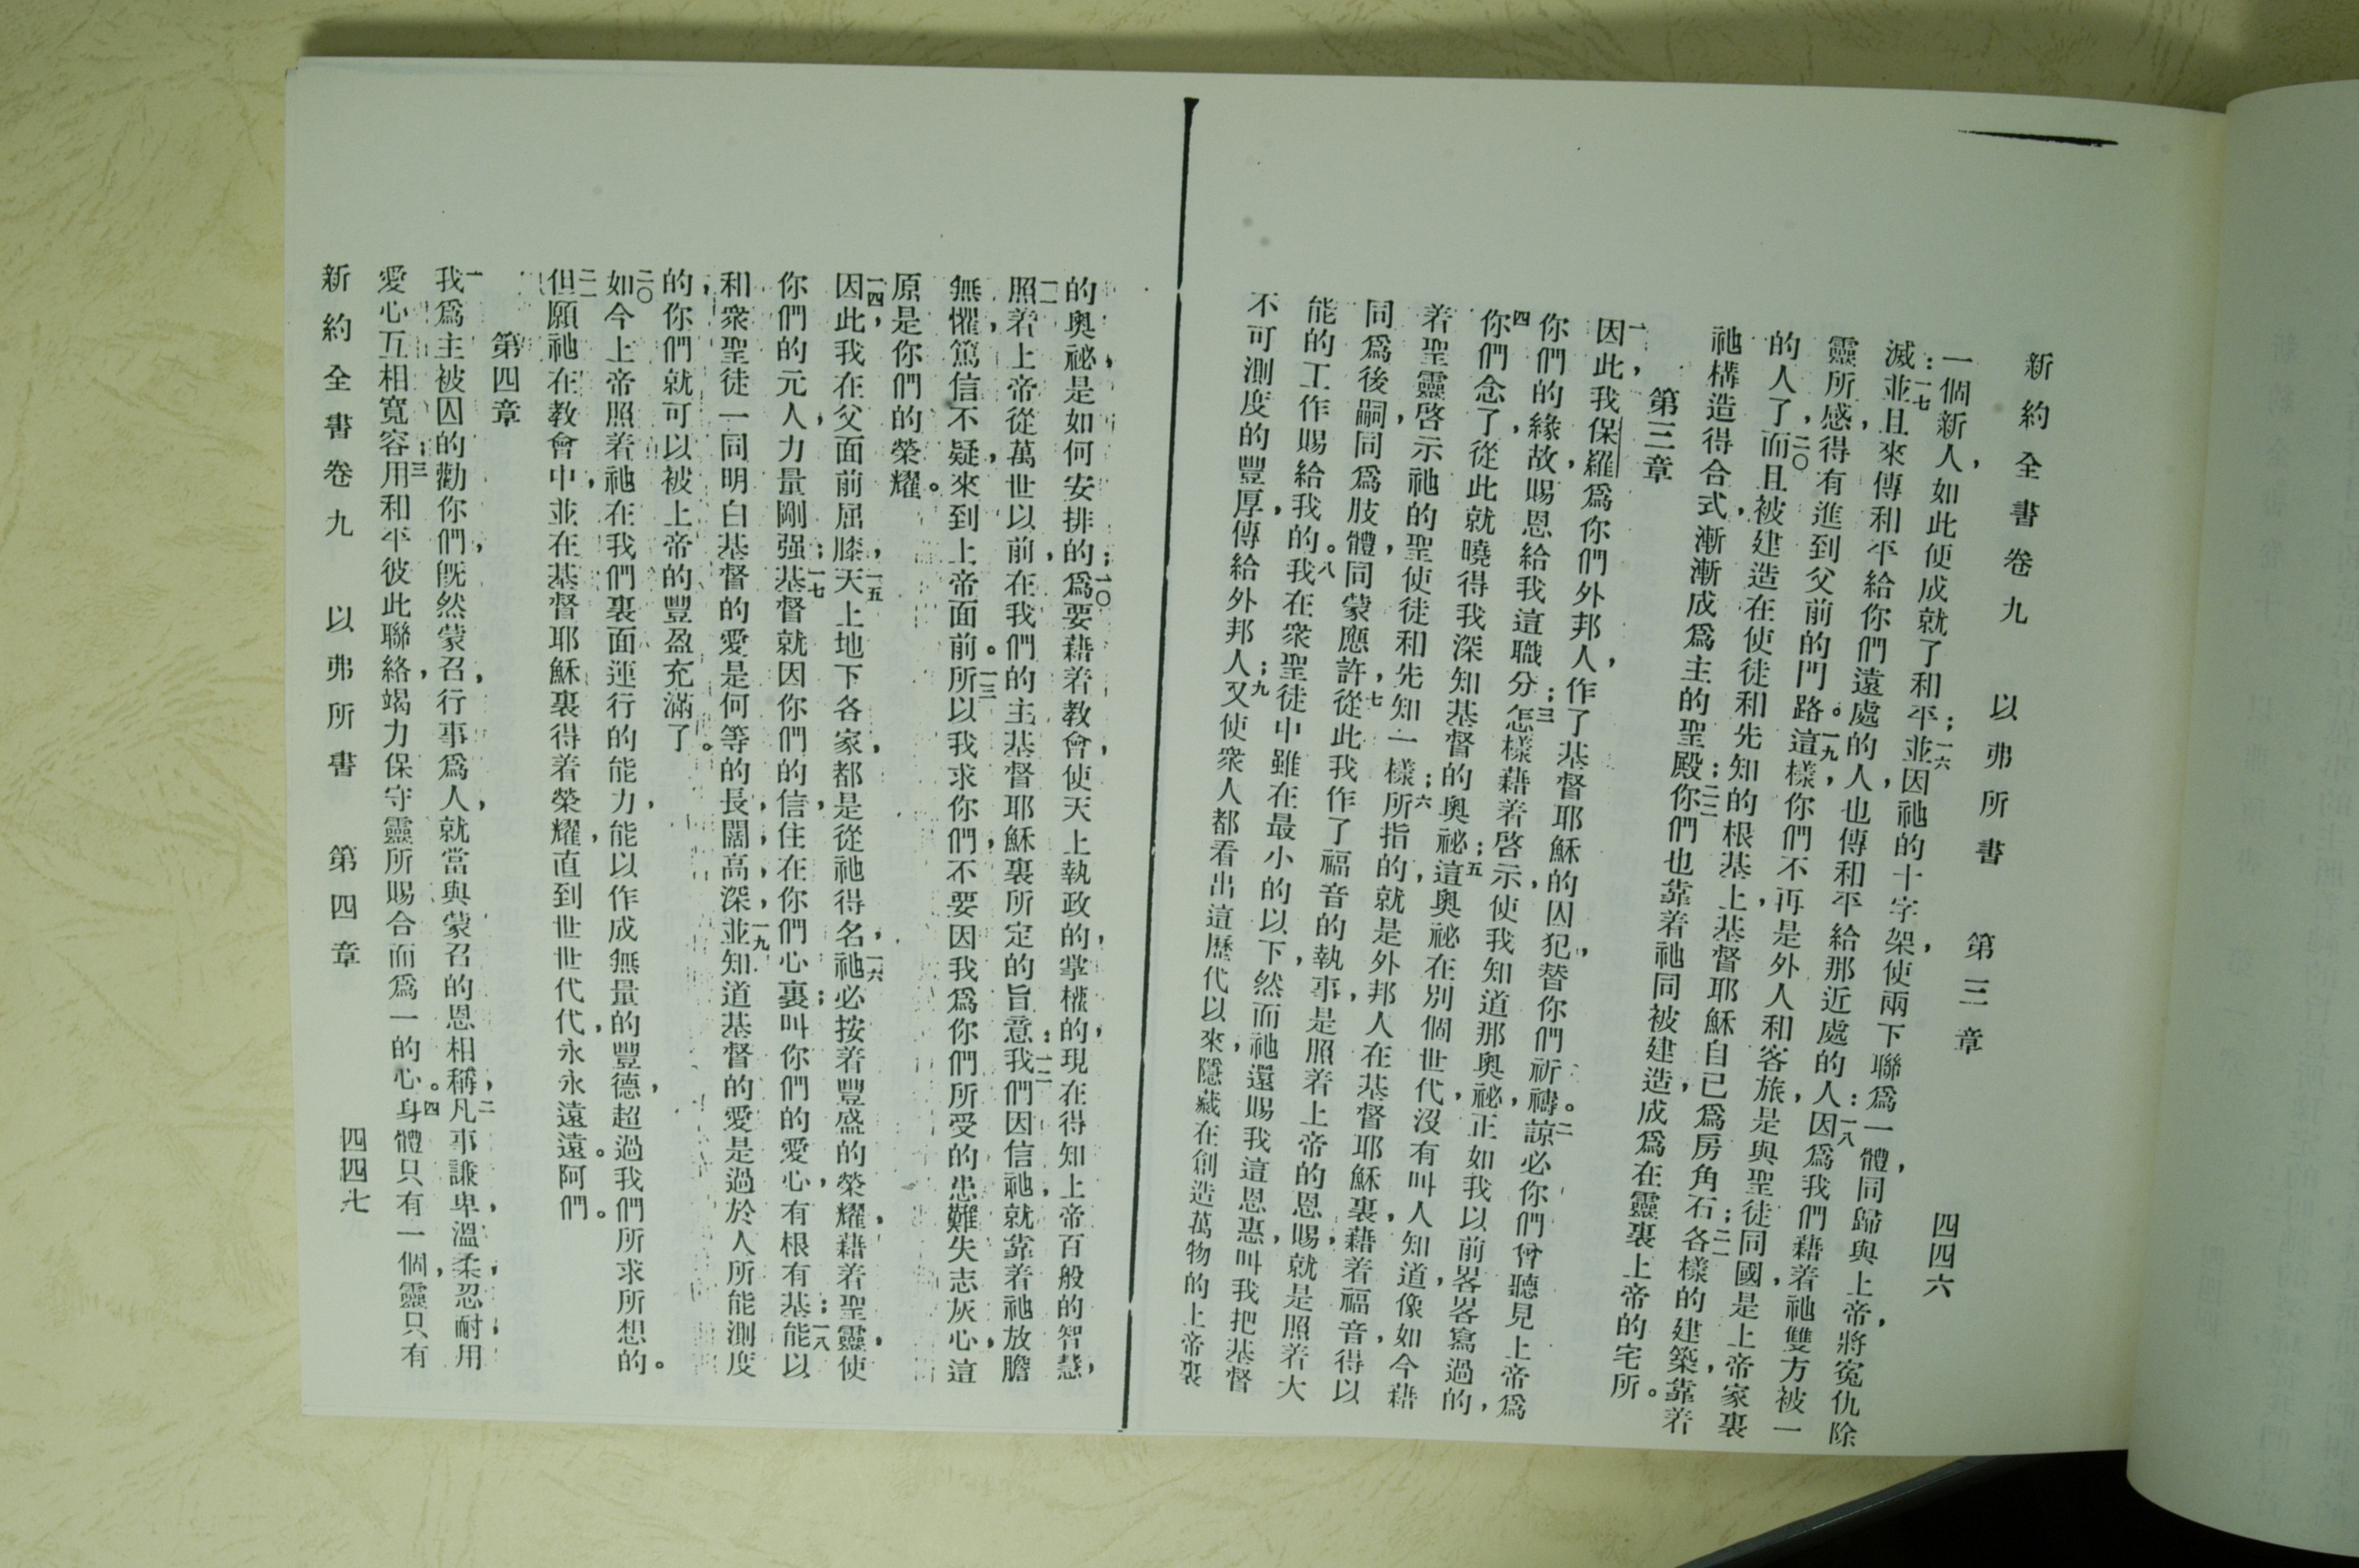 新約全書卷九 以弗所書 第三章 四四六
一個新人，如此便成就了和平；一六並因祂的十字架，使兩下聯爲一體，同歸與上帝，將寃仇除
滅；一七並且來傳和平給你們遠處的人，也傳和平給那近處的人；一八因爲我們藉着祂雙方被一
靈所感，得有進到父前的門路。一九這樣，你們不再是外人和客旅，是與聖徒同國，是上帝家裏
的人了，二〇而且被建造在使徒和先知的根基上，基督耶穌自己爲房角石；二一各樣的建築，靠着
祂構造得合式，漸漸成爲主的聖殿；二二你們也靠着祂同被建造，成爲在靈裏上帝的宅所。
第三章
一因此，我保羅爲你們外邦人，作了基督耶穌的囚犯，替你們祈禱。二諒必你們曾聽見上帝爲
你們的緣故，賜恩給我這職分；三怎樣藉着啓示，使我知道那奧祕，正如我以前畧畧寫過的，
四你們念了，從此就曉得我深知基督的奧祕；五這奧祕在別個世代，沒有叫人知道，像如今藉
着聖靈啓示祂的聖使徒和先知一樣；六所指的，就是外邦人在基督耶穌裏，藉着福音，得以
同爲後嗣，同爲肢體，同蒙應許，七從此我作了福音的執事，是照着上帝的恩賜；就是照着大
能的工作賜給我的。八我在衆聖徒中，雖在最小的以下，然而祂還賜我這恩惠，叫我把基督
不可測度的豐厚，傳給外邦人；九又使衆人都看出這歷代以來，隱藏在創造萬物的上帝裏
的奧祕，是如何安排的；一〇爲要藉着教會，使天上執政的，掌權的，現在得知上帝百般的智慧，
一一照着上帝從萬世以前，在我們的主基督耶穌裏所定的旨意；一二我們因信祂，就靠着祂放膽
無懼，篤信不疑，來到上帝面前。一三所以我求你們，不要因我爲你們所受的患難失志灰心，這
原是你們的榮耀。
一四因此，我在父面前屈膝，一五天上地下各家，都是從祂得名，一六祂必按着豐盛的榮耀，藉着聖靈，使
你們的元人，力量剛强；一七基督就因你們的信，住在你們心裏；叫你們的愛心，有根有基；一八能以
和衆聖徒一同明白基督的愛是何等的長，闊，高，深，一九並知道基督的愛是過於人所能測度
的，你們就可以被上帝的豐盈充滿了。
二〇如今上帝照着祂在我們裏面運行的能力，能以作成無量的豐德，超過我們所求所想的。
二一但願祂在教會中，並在基督耶穌裏，得着榮耀，直到世世代代，永永遠遠。阿們。
第四章
一我爲主被囚的勸你們，旣然蒙召，行事爲人，就當與蒙召的恩相稱，二凡事謙卑，溫柔，忍耐，用
愛心互相寬容；三用和平彼此聯絡，竭力保守靈所賜合而爲一的心。四身體只有一個，靈只有
新約全書卷九 以弗所書 第四章 四四七